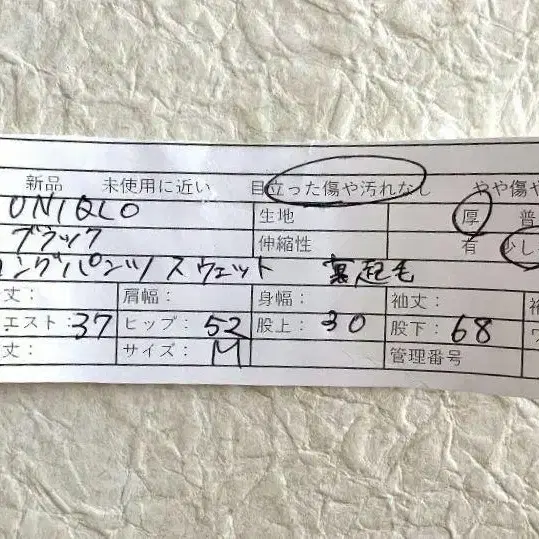 新品 未使用に近い 目立った傷や汚れなし やや傷や
UNIQLO 生地 厚 普
ブラック 伸縮性 有 少し
ングパンツ スウェット 裏起毛
丈: 肩幅: 身幅: 袖丈:
エスト:37 ヒップ:52 股上:30 股下:68
丈: サイズ:M 管理番号